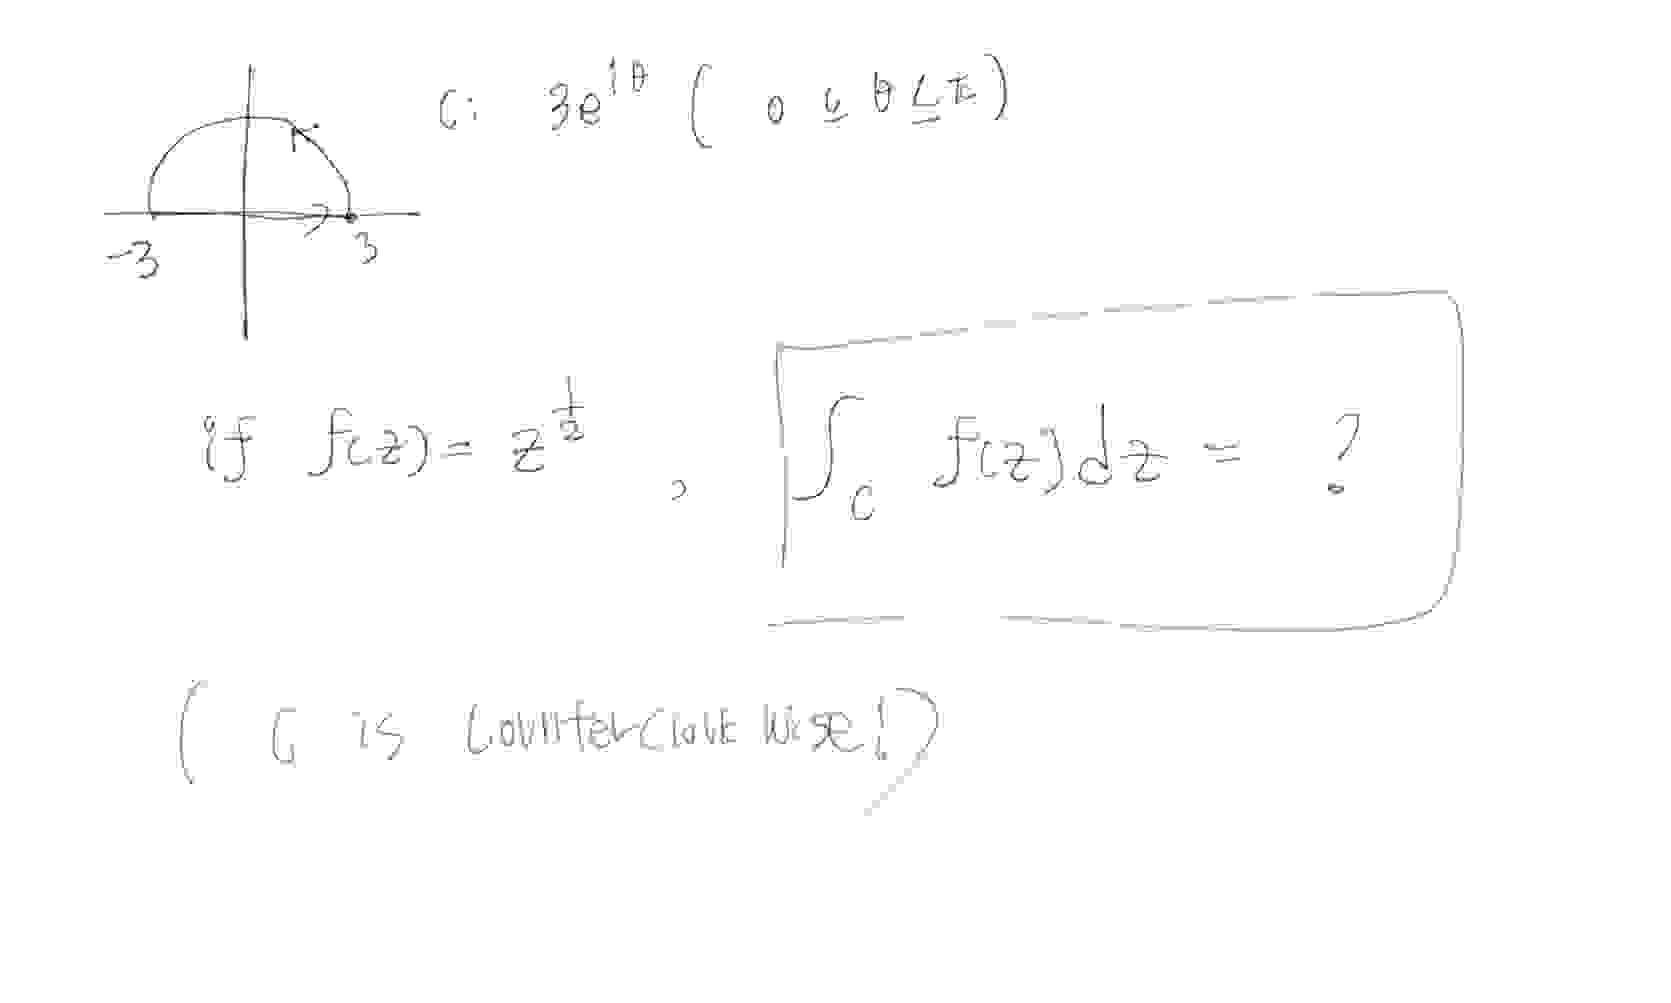 C: 3e^{iθ} ( 0 ≤ θ ≤ π )
-3 3
if f(z) = z^{1/2} , ∫_C f(z)dz = ?
( C is counterclockwise! )